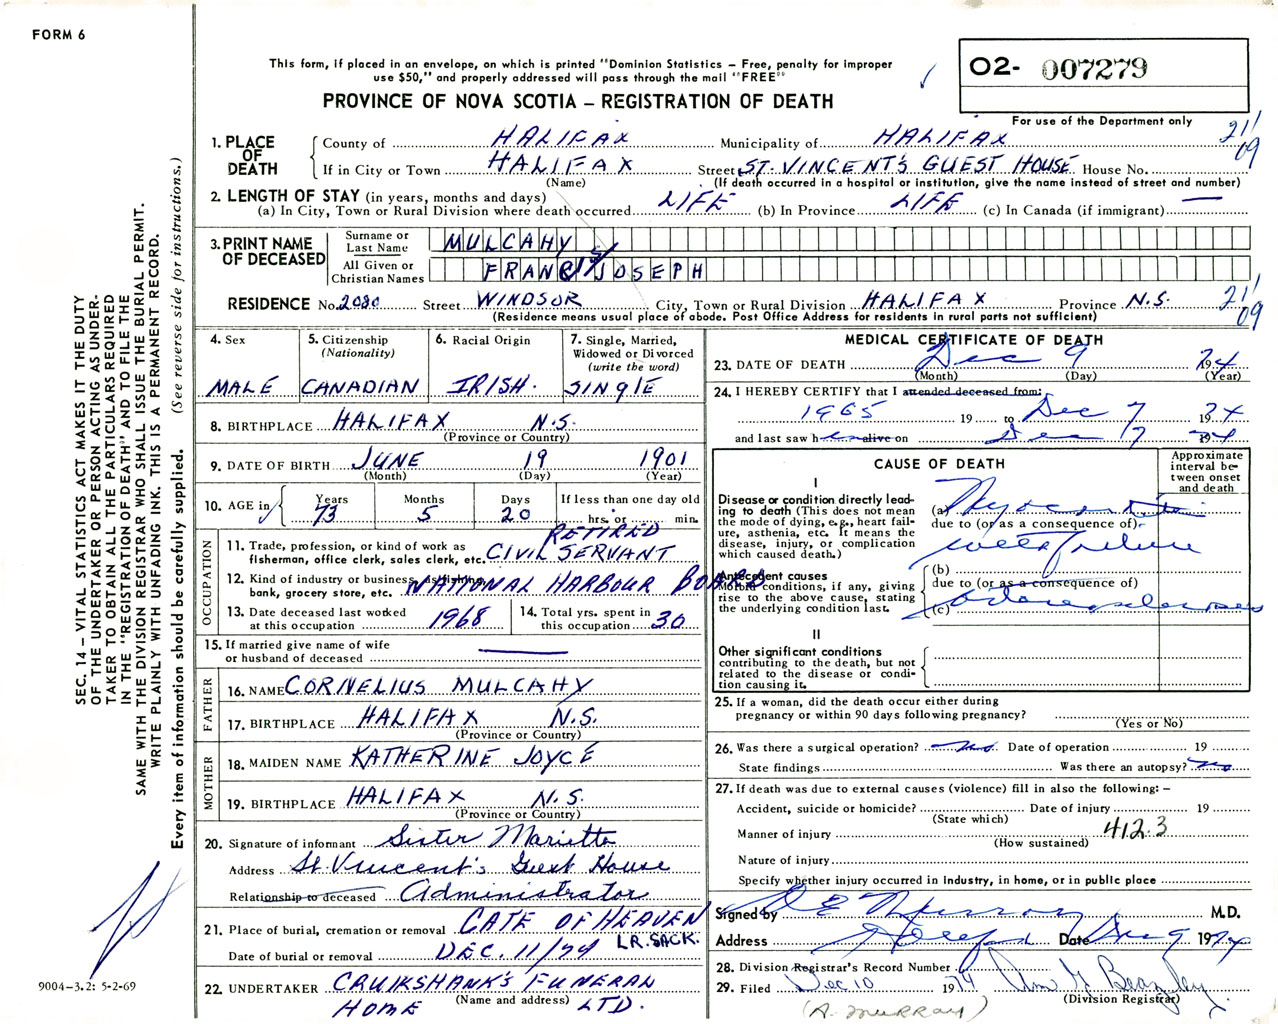 FORM 6
This form, if placed in an envelope, on which is printed "Dominion Statistics – Free, penalty for improper
use $50," and properly addressed will pass through the mail "FREE"
PROVINCE OF NOVA SCOTIA – REGISTRATION OF DEATH
02- 007279
For use of the Department only
1. PLACE OF DEATH
County of HALIFAX Municipality of HALIFAX 21/09
If in City or Town HALIFAX Street ST. VINCENT'S GUEST HOUSE House No.
(Name) (If death occurred in a hospital or institution, give the name instead of street and number)
2. LENGTH OF STAY (in years, months and days)
(a) In City, Town or Rural Division where death occurred LIFE (b) In Province LIFE (c) In Canada (if immigrant) —
3. PRINT NAME OF DECEASED
Surname or Last Name MULCAHY
All Given or Christian Names FRANCIS JOSEPH
RESIDENCE No. 2080 Street WINDSOR City, Town or Rural Division HALIFAX Province N.S. 21/09
(Residence means usual place of abode. Post Office Address for residents in rural parts not sufficient)
4. Sex MALE
5. Citizenship (Nationality) CANADIAN
6. Racial Origin IRISH.
7. Single, Married, Widowed or Divorced (write the word) SINGLE
8. BIRTHPLACE HALIFAX N.S.
(Province or Country)
9. DATE OF BIRTH JUNE 19 1901
(Month) (Day) (Year)
10. AGE in Years 73 Months 5 Days 20 If less than one day old hrs. or min.
OCCUPATION
11. Trade, profession, or kind of work as fisherman, office clerk, sales clerk, etc. RETIRED CIVIL SERVANT
12. Kind of industry or business, as fishing, bank, grocery store, etc. NATIONAL HARBOUR BOARD
13. Date deceased last worked at this occupation 1968
14. Total yrs. spent in this occupation 30
15. If married give name of wife or husband of deceased —
FATHER
16. NAME CORNELIUS MULCAHY
17. BIRTHPLACE HALIFAX N.S.
(Province or Country)
MOTHER
18. MAIDEN NAME KATHERINE JOYCE
19. BIRTHPLACE HALIFAX N.S.
(Province or Country)
20. Signature of informant Sister Marietta
Address St. Vincent's Guest House
Relationship to deceased Administrator
21. Place of burial, cremation or removal GATE OF HEAVEN
Date of burial or removal DEC. 11/74 LR. SACK.
22. UNDERTAKER CRUIKSHANK'S FUNERAL
(Name and address)
HOME LTD.
MEDICAL CERTIFICATE OF DEATH
23. DATE OF DEATH Dec 9 1974
(Month) (Day) (Year)
24. I HEREBY CERTIFY that I attended deceased from:
1965 19 to Dec 7 1974
and last saw h alive on Dec 7 1974
CAUSE OF DEATH
Approximate interval between onset and death
I
Disease or condition directly leading to death (This does not mean the mode of dying, e.g., heart failure, asthenia, etc. It means the disease, injury, or complication which caused death.)
(a)
due to (or as a consequence of)
failure
Antecedent causes
Morbid conditions, if any, giving rise to the above cause, stating the underlying condition last.
(b)
due to (or as a consequence of)
(c)
II
Other significant conditions
contributing to the death, but not related to the disease or condition causing it.
25. If a woman, did the death occur either during pregnancy or within 90 days following pregnancy?
(Yes or No)
26. Was there a surgical operation? no. Date of operation 19
State findings Was there an autopsy? no
27. If death was due to external causes (violence) fill in also the following: –
Accident, suicide or homicide? Date of injury 19
(State which)
Manner of injury 412.3
(How sustained)
Nature of injury
Specify whether injury occurred in industry, in home, or in public place
Signed by M.D.
Address Date Dec 9 1974
28. Division Registrar's Record Number
29. Filed Dec 10 1974
(Division Registrar)
(A. MURRAY)
SEC. 14 – VITAL STATISTICS ACT MAKES IT THE DUTY
OF THE UNDERTAKER OR PERSON ACTING AS UNDER-
TAKER TO OBTAIN ALL THE PARTICULARS REQUIRED
IN THE "REGISTRATION OF DEATH" AND TO FILE THE
SAME WITH THE DIVISION REGISTRAR WHO SHALL ISSUE THE BURIAL PERMIT.
WRITE PLAINLY WITH UNFADING INK. THIS IS A PERMANENT RECORD.
Every item of information should be carefully supplied. (See reverse side for instructions.)
9004–3.2: 5-2-69